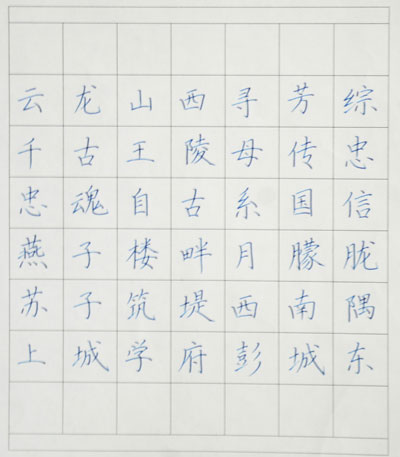 云龙山西寻芳综
千古王陵母传忠
忠魂自古系国信
燕子楼畔月朦胧
苏子筑堤西南隅
上城学府彭城东